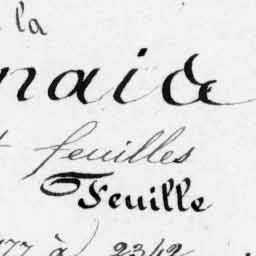 la
naia
feuilles
Feuille
177 à 2342